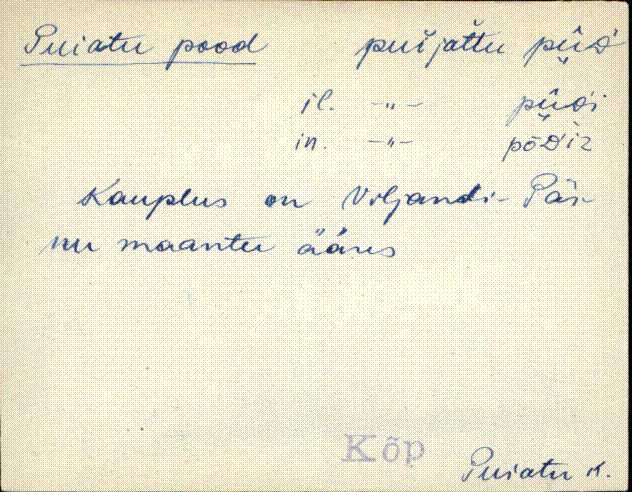 Puiatu pood puìjattu pṳ̄D
il. -"- pṳ̄Di
in. -"- pōDiz
Kauplus on Viljandi-Pär-
nu maantee ääres
Kõp
Puiatu k.